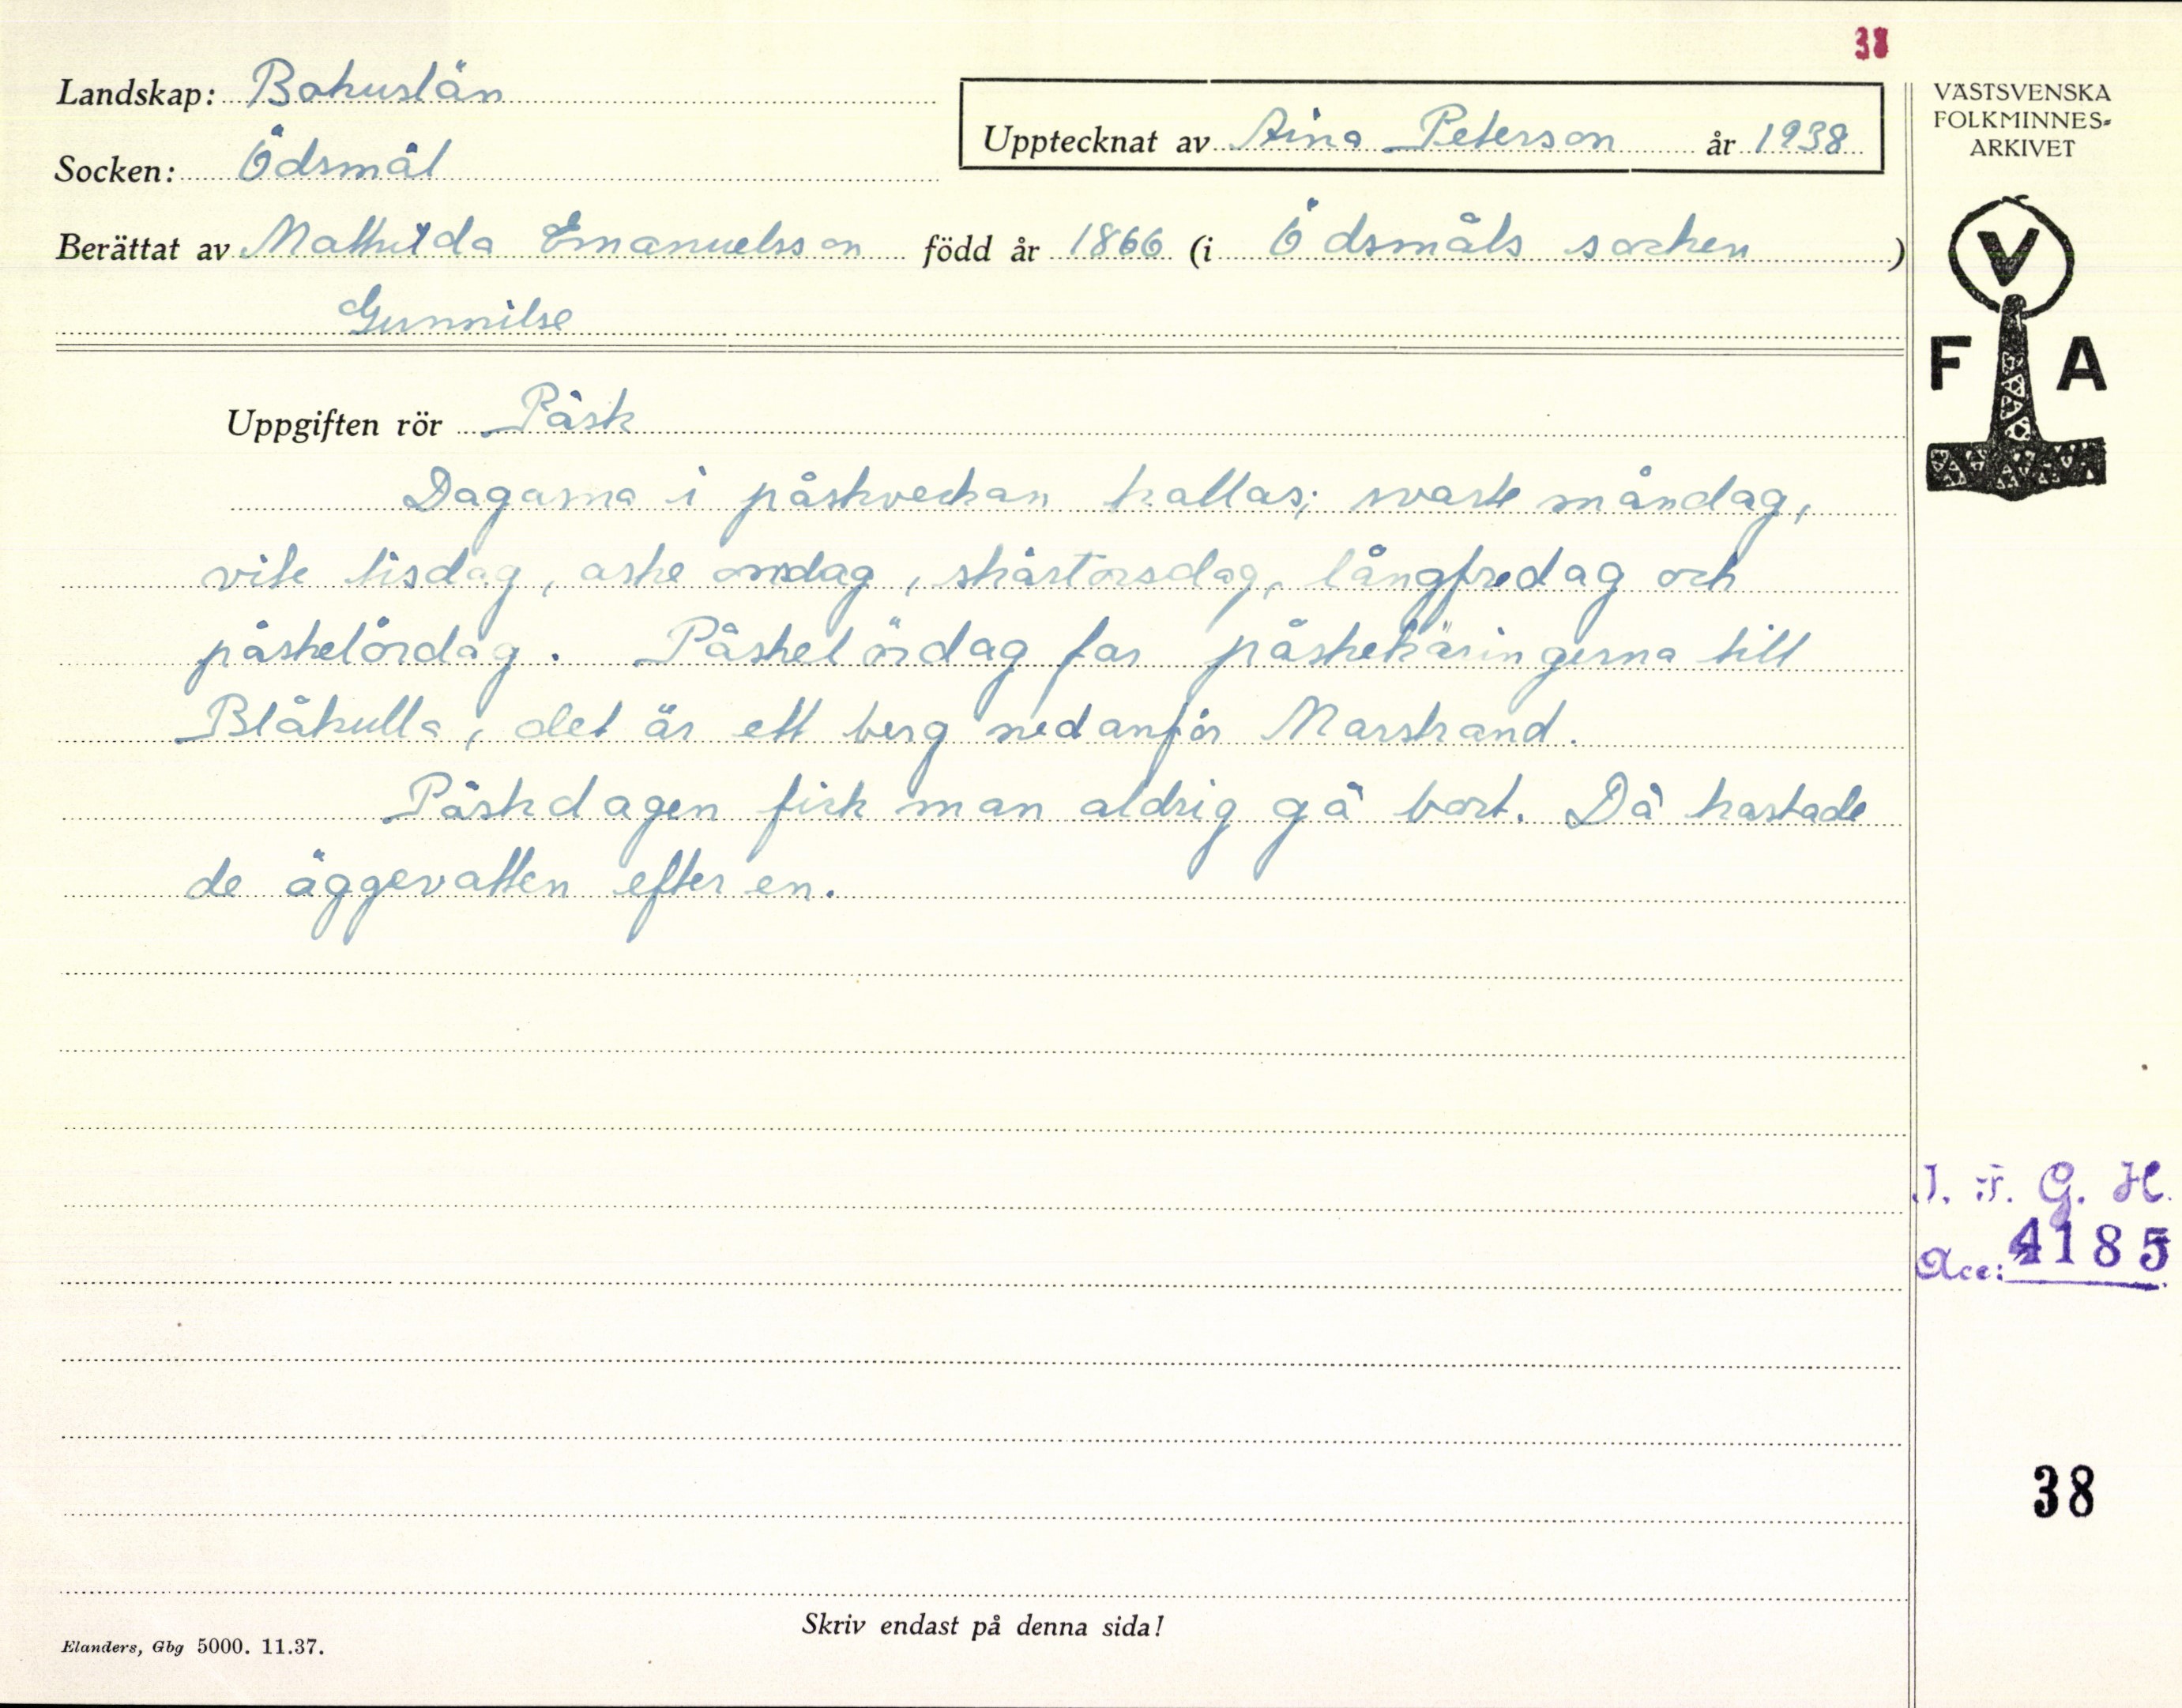 38
Landskap: Bohuslän
Upptecknat av Aina Peterson år 1938
Socken: Ödsmål
Berättat av Mathilda Emanuelsson född år 1866 (i Ödsmåls socken)
Gunnilse
VÄSTSVENSKA
FOLKMINNES-
ARKIVET
V
F A
Uppgiften rör Påsk
Dagarna i påskveckan kallas; svarte måndag,
vite tisdag, aske onsdag, skärtorsdag, långfredag och
påskelördag. Påskelördag far påskekäringerna till
Blåkulla, det är ett berg nedanför Marstrand.
Påskdagen fick man aldrig gå bort. Då kastade
de äggevatten efter en.
I. F. G. H.
Acc: 4185
38
Skriv endast på denna sida!
Elanders, Gbg 5000. 11.37.